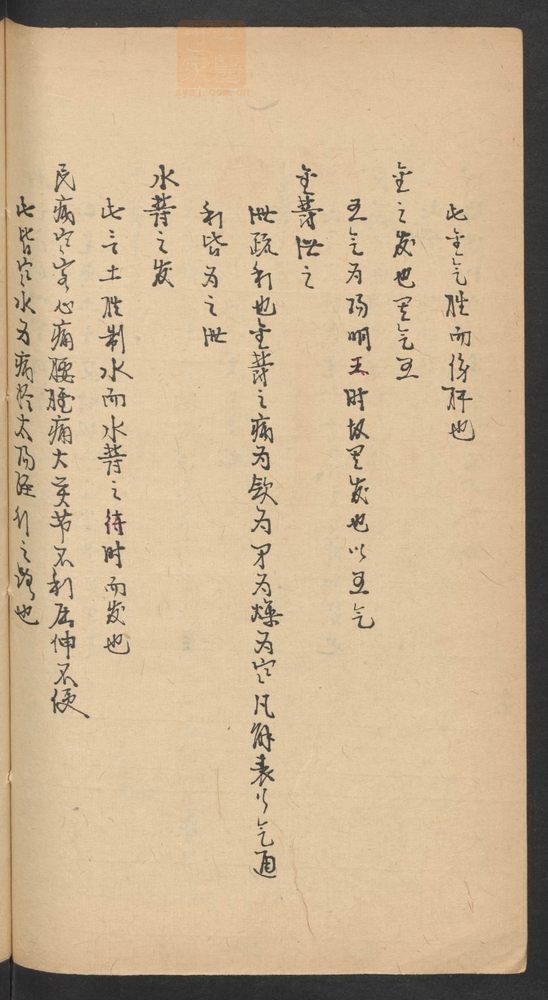 此金气胜而傷肝也
金之发也其气五
五气为阳明王时故其发也以五气
金欝泄之
泄疏利也金欝之病为欬为为燥为寒凡解表行气通
利皆为之泄
水欝之发
此言土胜制水而水欝之待时而发也
民病寒客心痛腰脽痛大关节不利屈伸不便
此皆寒水为病太阳经行之也